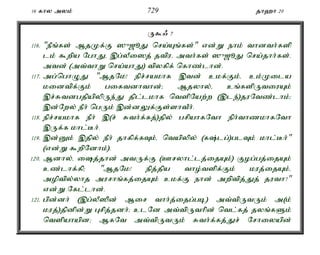 16 கால அலம் 729 தாஹா 20
ருகூஃ 7
116. "நீங்கள் ஆதமுக்கு ஸுஜூது செய்யுங்கள்" என்று நாம் வானவர்களி
டம் கூறிய போது, இப்லீஸைத் தவிர, அவர்கள் ஸுஜூது செய்தார்கள்.
அவன் (அவ்வாறு செய்யாது) விலகிக் கொண்டான்.
117. அப்பொழுது "ஆதமே! நிச்சயமாக இவன் உமக்கும், உம்முடைய
மனைவிக்கும் பகைவனாவான்; ஆதலால், உங்களிருவரையும்
இச்சுவனபதியிலிருந்து திட்டமாக வெளியேற்ற (இடந்)தரவேண்டாம்;
இன்றேல் நீர் பெரும் இன்னலுக்குள்ளாவீர்.
118. நிச்சயமாக நீர் இ(ச் சுவர்க்கத்)தில் பசியாகவோ நிர்வாணமாகவோ
இருக்க மாட்டீர்
119. இன்னும் இதில் நீர் தாகிக்கவும், வெயிலில் (கஷ்டப்)படவும் மாட்டீர்"
(என்று கூறினோம்)
120. ஆனால், ஷைத்தான் அவருக்கு (ஊசலாட்டத்தையும்) குழப்பத்தையும்
உண்டாக்கி; "ஆதமே! நித்திய வாழ்வளிக்கும் மரத்தையும்,
அழிவில்லாத அரசாங்கத்தையும் உமக்கு நான் அறிவித்துத் தரவா?"
என்று கேட்டான்.
121. பின்னர் (இப்லீஸின் ஆசை வார்த்தைப்படி) அவ்விருவரும் அ(ம்
மரத்)தினின்று புசித்தனர்; உடனே அவ்விருவரின் வெட்கத் தலங்களும்
வெளியாயின; ஆகவே அவ்விருவரும் சுவர்க்கத்துச் சோலையின்